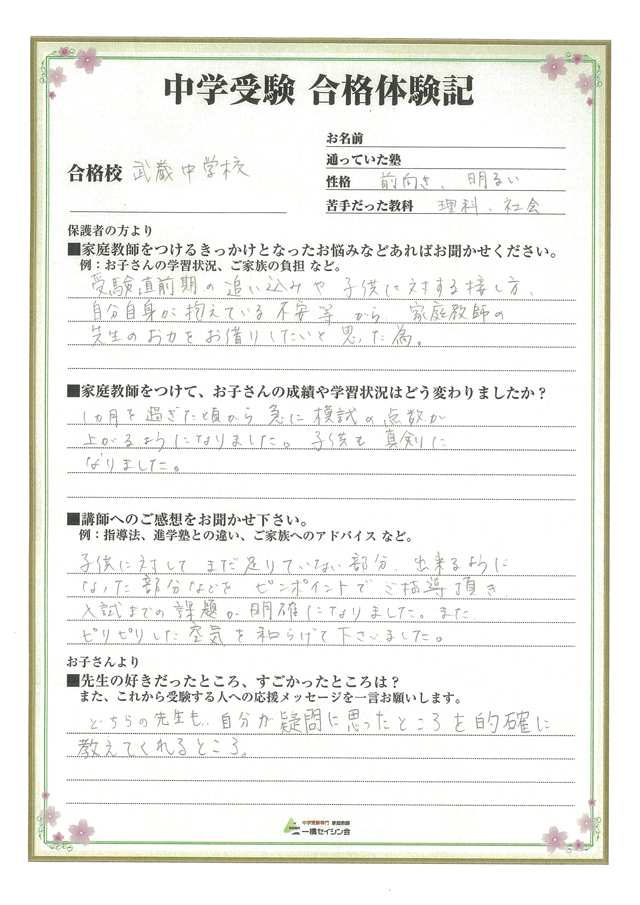 中学受験 合格体験記
お名前
通っていた塾
合格校 武蔵中学校
性格 前向き、明るい
苦手だった教科 理科、社会
保護者の方より
■家庭教師をつけるきっかけとなったお悩みなどあればお聞かせください。
例：お子さんの学習状況、ご家族の負担 など。
受験直前期の追い込みや子供に対する接し方、
自分自身が抱えている不安等から、家庭教師の
先生のお力をお借りしたいと思った為。
■家庭教師をつけて、お子さんの成績や学習状況はどう変わりましたか？
1ヵ月を過ぎた頃から急に模試の点数が
上がるようになりました。子供も真剣に
なりました。
■講師へのご感想をお聞かせ下さい。
例：指導法、進学塾との違い、ご家族へのアドバイス など。
子供に対してまだ足りていない部分、出来るように
なった部分などをピンポイントでご指導頂き、
入試までの課題が明確になりました。また、
ピリピリした空気を和らげて下さいました。
お子さんより
■先生の好きだったところ、すごかったところは？
また、これから受験する人への応援メッセージを一言お願いします。
どちらの先生も、自分が疑問に思ったところを的確に
教えてくれるところ。
中学受験専門 家庭教師
一橋セイシン会